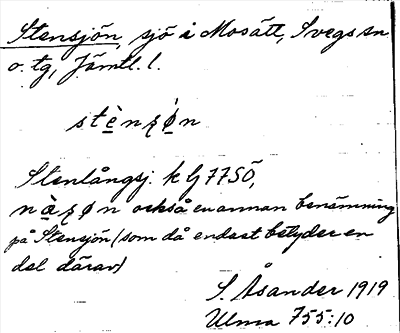 Stensjön, sjö i Mosätt, Svegs sn
o. tg, Jämtl. l.
stènʂø̀n
Stenlångsj. k G 7750,
nàʂøn också en annan benämning
på Stensjön (som då endast betyder en
del därav)
S. Åsander 1919
Ulma 755:10